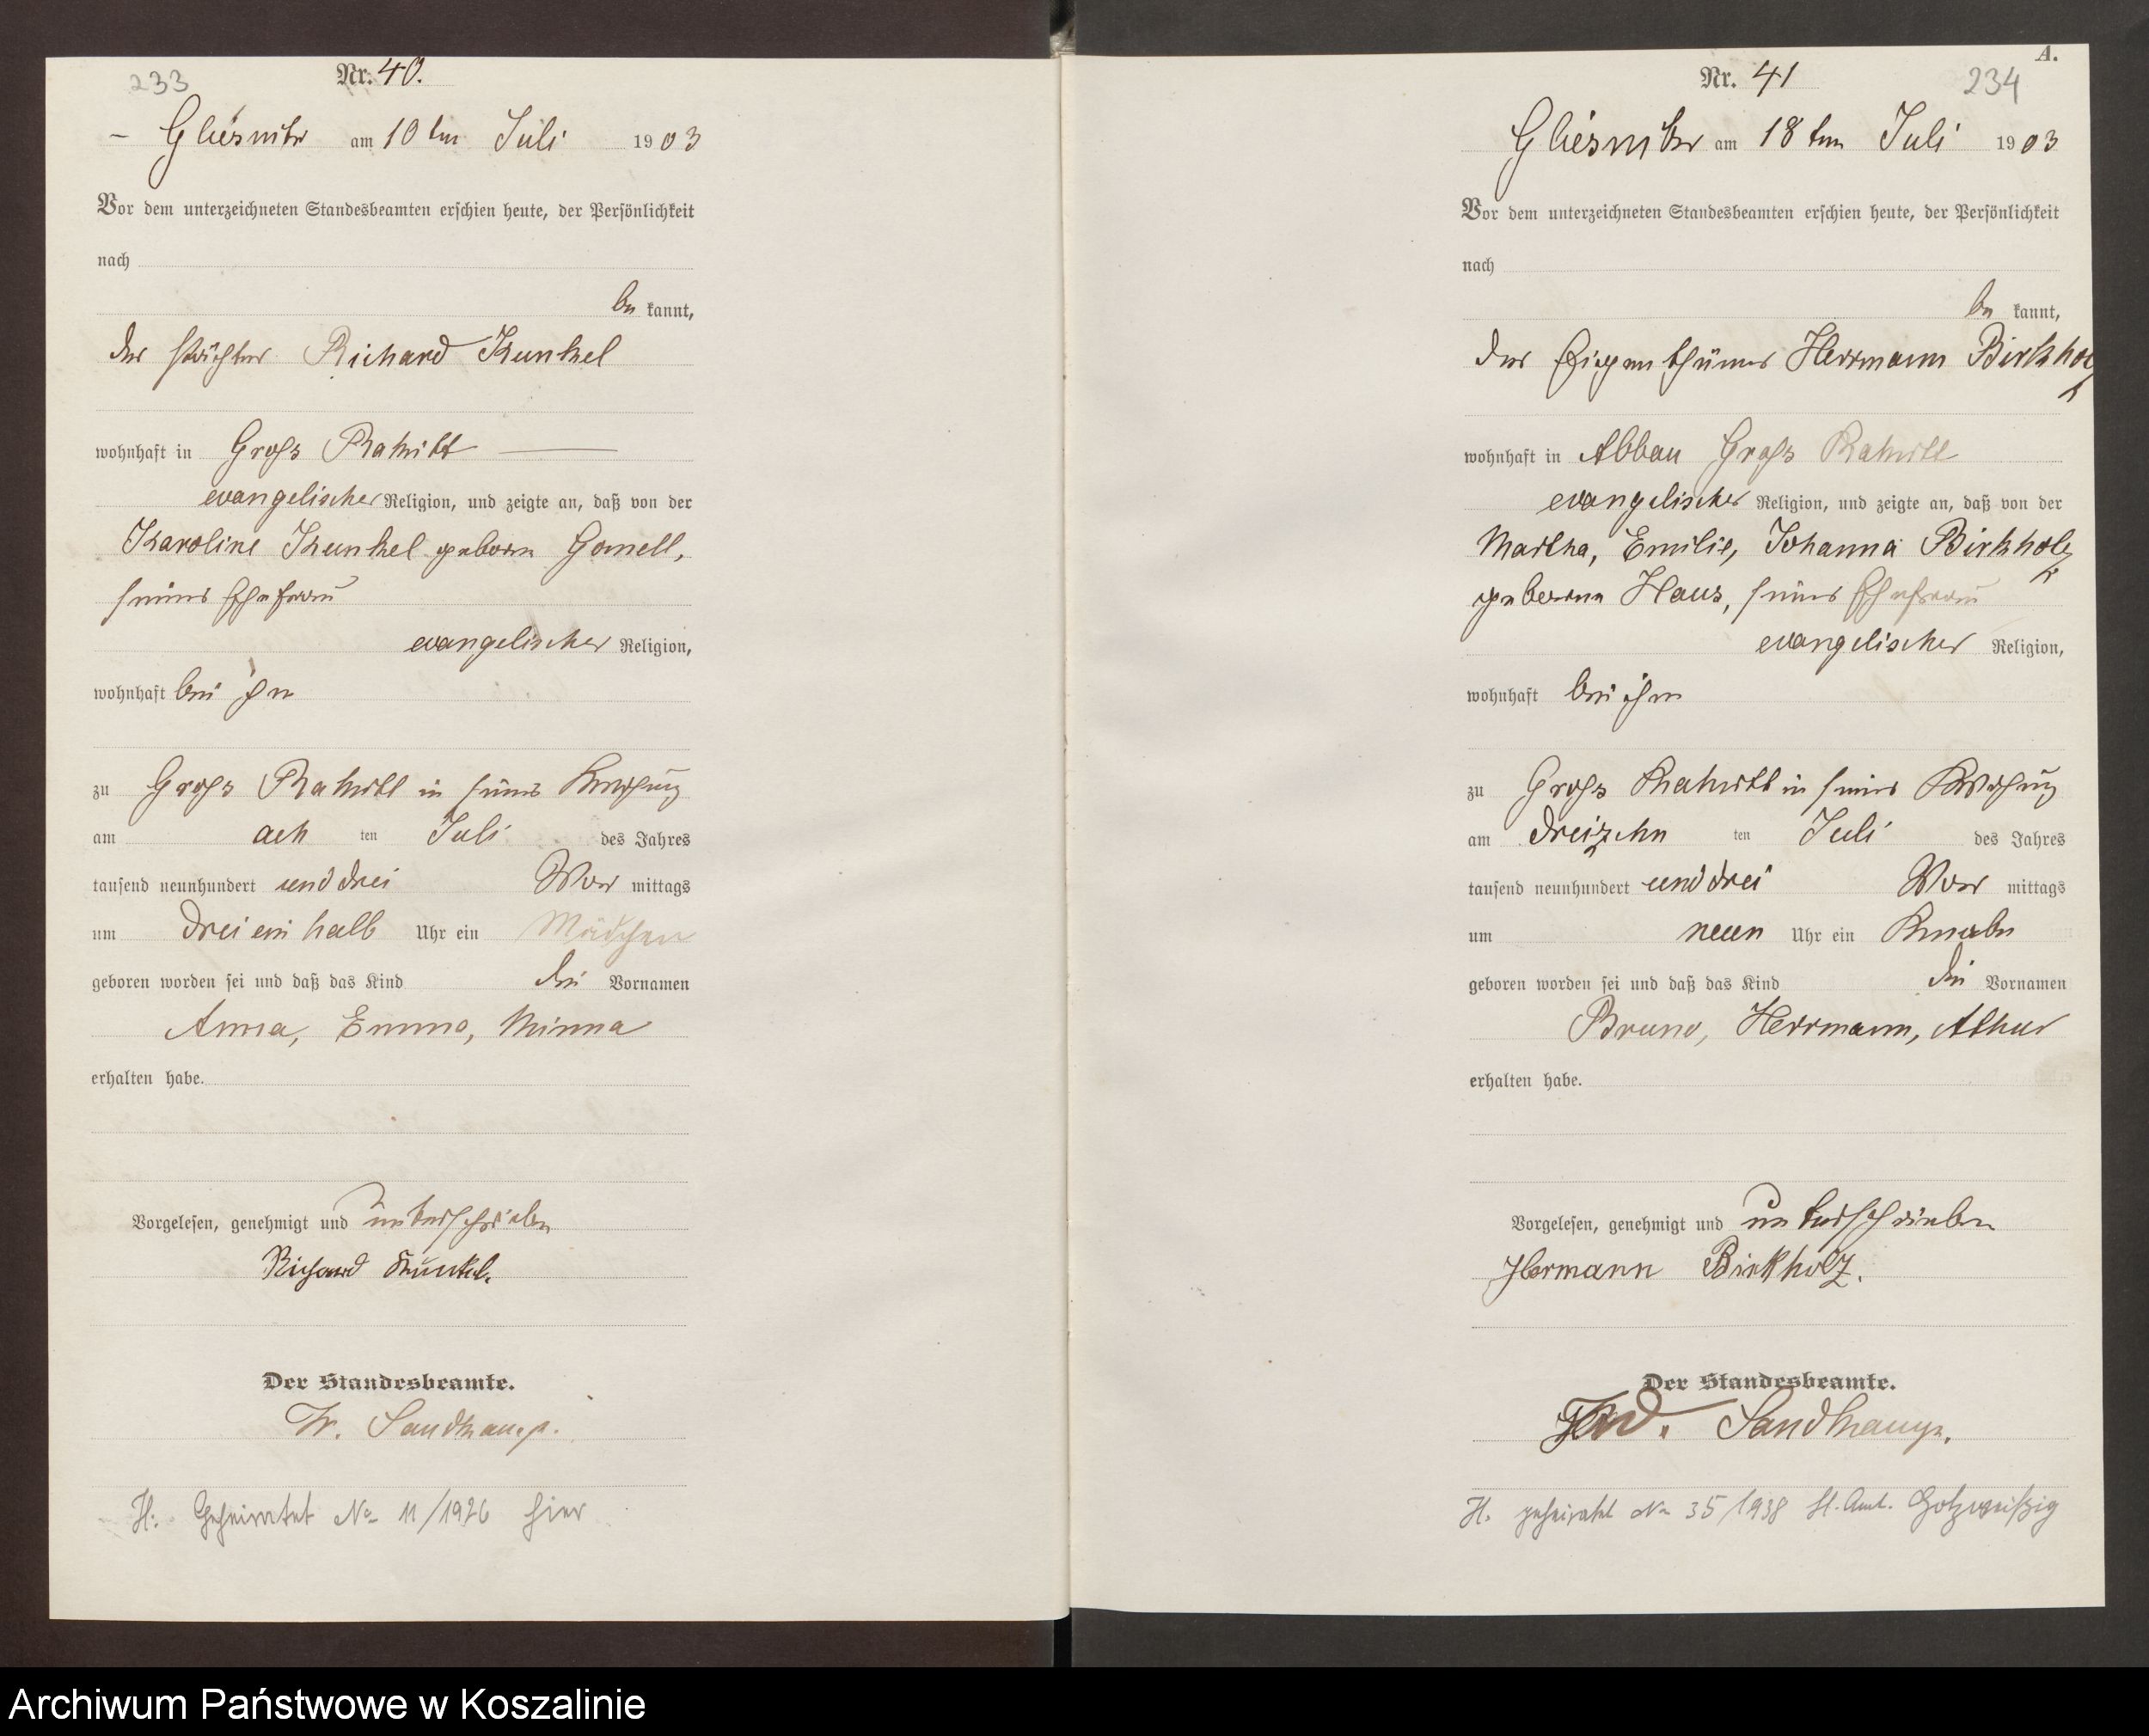 233
Nr. 40.
Gliesnitz am 10ten Juli 1903
Vor dem unterzeichneten Standesbeamten erschien heute, der Persönlichkeit
nach
be kannt,
der Pächter Richard Kunkel
wohnhaft in Groß Rakitt
evangelischer Religion, und zeigte an, daß von der
Karoline Kunkel geboren Gomell,
seiner Ehefrau
evangelischer Religion,
wohnhaft bei ihm
zu Groß Rakitt in seiner Wohnung
am ach ten Juli des Jahres
tausend neunhundert und drei Vor mittags
um drei ein halb Uhr ein Mädchen
geboren worden sei und daß das Kind die Vornamen
Anna, Emma, Minna
erhalten habe.
Vorgelesen, genehmigt und unterschrieben
Richard Kunkel.
Der Standesbeamte.
Sandkamp.
H: Geheiratet No 11/1926 hier
A.
Nr. 41
234
Gliesnitz am 18ten Juli 1903
Vor dem unterzeichneten Standesbeamten erschien heute, der Persönlichkeit
nach
be kannt,
der Eigenthümer Herrmann Birkholz
wohnhaft in Abbau Groß Rakitt
evangelischer Religion, und zeigte an, daß von der
Martha, Emilie, Johanna Birkholz
geborene Haus, seiner Ehefrau
evangelischer Religion,
wohnhaft bei ihm
zu Groß Rakitt in seiner Wohnung
am dreizehn ten Juli des Jahres
tausend neunhundert und drei Vor mittags
um neun Uhr ein Knabe
geboren worden sei und daß das Kind die Vornamen
Bruno, Herrmann, Athur
erhalten habe.
Vorgelesen, genehmigt und unterschrieben
Hermann Birkholz.
Der Standesbeamte.
Sandkamp.
H. geheiratet No 35/1938 St. Amt. Holzweißig
Archiwum Państwowe w Koszalinie